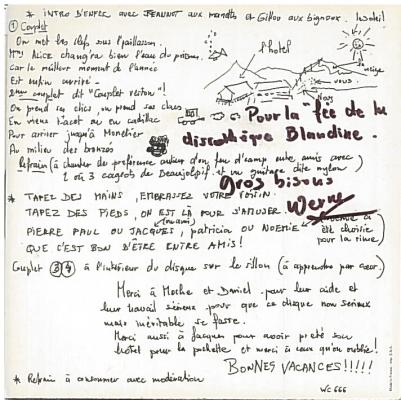 * INTRO D'ENFER avec JEANNOT aux manettes et Gillou aux bignoux.
le soleil
① Couplet
On met les clefs sous l'paillasson
l'hotel
Mme ALICE chang'ra bien l'eau du poisson
Car le meilleur moment de l'année
la neige
Est enfin arrivé -
vous
2ème couplet dit "Couplet veston" !
On prend ses clics on prend ses clacs
Pour la "fée de la
En vieux tacot ou en cadillac
discothèque Blandine.
Pour arriver jusqu'à Monetier
Au milieu des bronzés
Refrain (à chanter de préférence autour d'un feu d'camp entre amis avec
2 ou 3 cageots de Beaujolpif et un guitare dite nylon)
gros bisous
* TAPEZ DES MAINS, EMBRASSEZ VOTRE VOISIN
TAPEZ DES PIEDS, ON EST LÀ POUR S'AMUSER
PIERRE PAUL OU JACQUES, patricia OU NOEMIE
à
été choisie
pour la rime)
QUE C'EST BON D'ÊTRE ENTRE AMIS !
Couplet ③④ à l'intérieur du disque sur le sillon (à apprendre par cœur.)
Merci à Moche et Daniel pour leur aide et
leur travail sérieux pour que ce disque non sérieux
mais inévitable se fasse.
Merci aussi à Jacques pour avoir prêté son
hôtel pour la pochette et merci à ceux qu'on oublie !
BONNES VACANCES !!!!!
* Refrain à consommer avec modération
WC 666